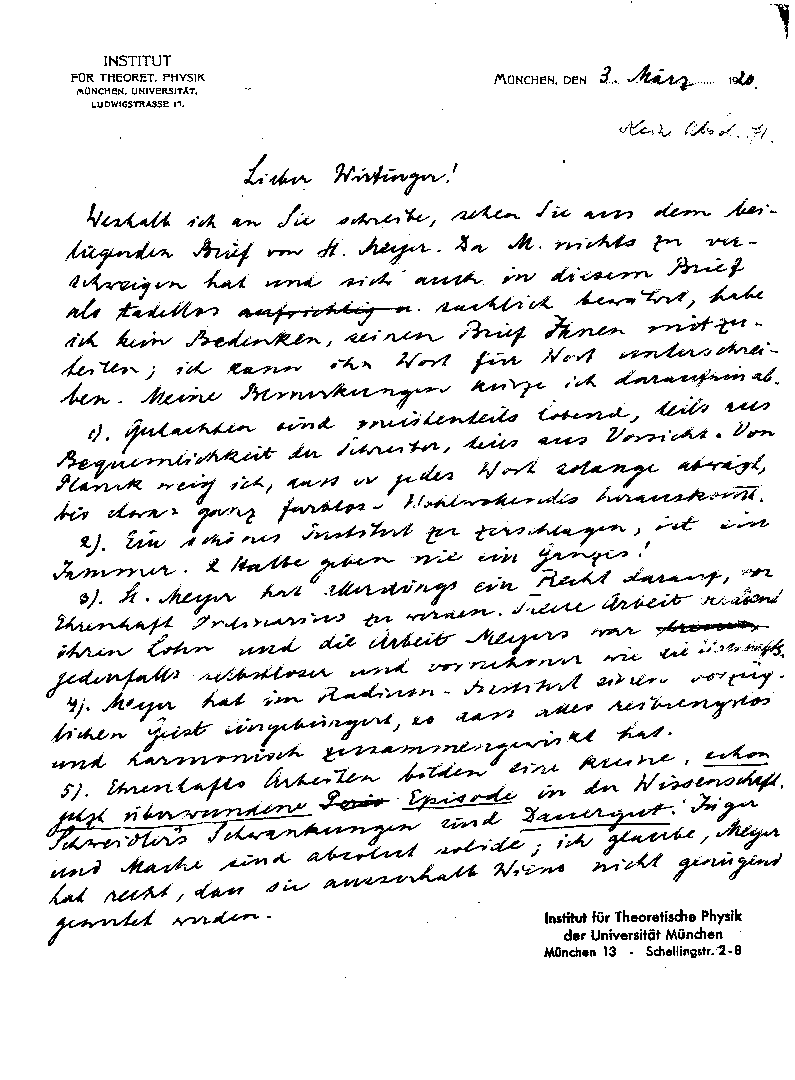 INSTITUT
FÜR THEORET. PHYSIK
MÜNCHEN, UNIVERSITÄT,
LUDWIGSTRASSE 17.
MÜNCHEN, DEN 3. März 1920.
Lieber Wirtinger!
Weshalb ich an Sie schreibe, sehen Sie aus dem bei-
liegenden Brief von St. Meyer. Da M. nichts zu ver-
schweigen hat und sich auch in diesem Brief
als tadellos aufrichtig u. sachlich bewährt, habe
ich kein Bedenken, seinen Brief Ihnen mitzu-
teilen; ich kann ihn Wort für Wort unterschrei-
ben. Meine Bemerkungen kürze ich daraufhin ab.
1). Gutachten sind meistenteils lobend, teils aus
Bequemlichkeit der Schreiber, teils aus Vorsicht. Von
Planck weiß ich, dass er jedes Wort solange abwägt,
bis etwas ganz farblos-Wohlwollendes herauskommt.
2). Ein schönes Institut zu zerschlagen, ist ein
Jammer. 2 Halbe geben nie ein Ganzes!
3). St. Meyer hat allerdings ein Recht darauf, vor
Ehrenhaft Ordinarius zu werden. Jede Arbeit
ihren Lohn und die Arbeit Meyers war
jedenfalls selbstloser und vornehmer wie die
4). Meyer hat im Radium-Institut einen vorzüg-
lichen Geist eingebürgert, so dass alles reibungslos
und harmonisch zusammengewirkt hat.
5). Ehrenhafts Arbeiten bilden eine kleine, schon
jetzt überwundene Episode in der Wissenschaft.
Schweidler's Schwankungen sind Dauergut. Jäger
und Mache sind absolut solide; ich glaube, Meyer
hat recht, dass sie ausserhalb Wiens nicht genügend
gewertet werden.
Institut für Theoretische Physik
der Universität München
München 13 - Schellingstr. 2-8